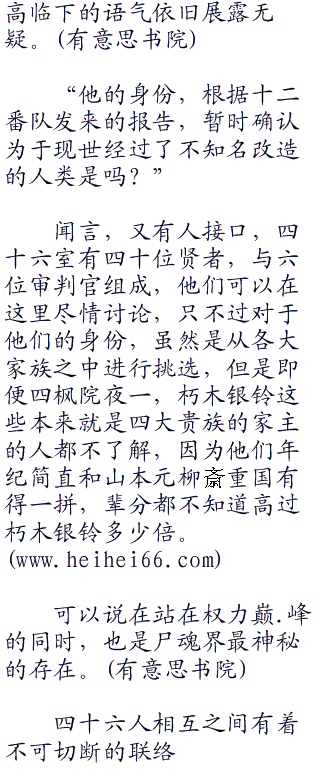 高临下的语气依旧展露无
疑。(有意思书院)
“他的身份，根据十二
番队发来的报告，暂时确认
为于现世经过了不知名改造
的人类是吗？”
闻言，又有人接口，四
十六室有四十位贤者，与六
位审判官组成，他们可以在
这里尽情讨论，只不过对于
他们的身份，虽然是从各大
家族之中进行挑选，但是即
便四枫院夜一，朽木银铃这
些本来就是四大贵族的家主
的人都不了解，因为他们年
纪简直和山本元柳斎重国有
得一拼，辈分都不知道高过
朽木银铃多少倍。
(www.heihei66.com)
可以说在站在权力巅.峰
的同时，也是尸魂界最神秘
的存在。(有意思书院)
四十六人相互之间有着
不可切断的联络